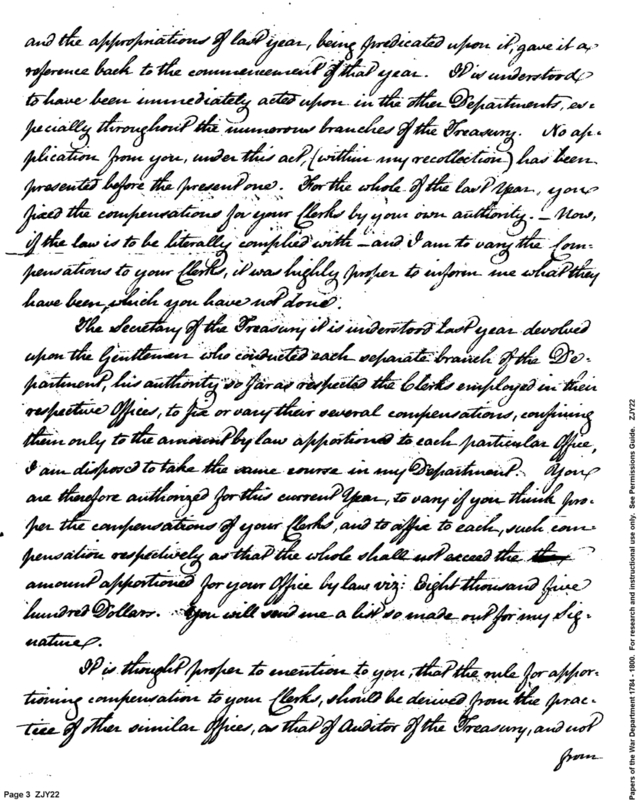 and the appropriations of last year, being predicated upon it, gave it a
reference back to the commencement of that year. It is understood
to have been immediately acted upon in the other Departments, es-
pecially throughout the numerous branches of the Treasury. No ap-
plication from you, under this act, (within my recollection) has been
presented before the present one. For the whole of the last Year, you
fixed the compensations for your Clerks by your own authority. - Now,
if the law is to be literally complied with - and I am to vary the Com-
pensations to your Clerks, it was highly proper to inform me what they
have been, which you have not done.
The Secretary of the Treasury it is understood last year devolved
upon the Gentlemen who conducted each separate branch of the De-
partment, his authority so far as respected the Clerks employed in their
respective Offices, to fix or vary their several compensations, confining
them only to the amount by law apportioned to each particular Office,
I am disposed to take the same course in my Department. You
are therefore authorized for this current Year, to vary if you think pro-
per the compensations of your Clerks, and to affix to each, such com-
pensation respectively as that the whole shall not exceed the
amount apportioned for your Office by law viz: Eight thousand five
hundred Dollars. You will send me a list so made out for my Sig-
nature.
It is thought proper to mention to you, that the rule for appor-
tioning compensation to your Clerks, should be derived from the prac-
tice of other similar Offices, as that of Auditor of the Treasury, and not
from
Page 3 ZJY22
Papers of the War Department 1784 - 1800. For research and instructional use only. See Permissions Guide. ZJY22